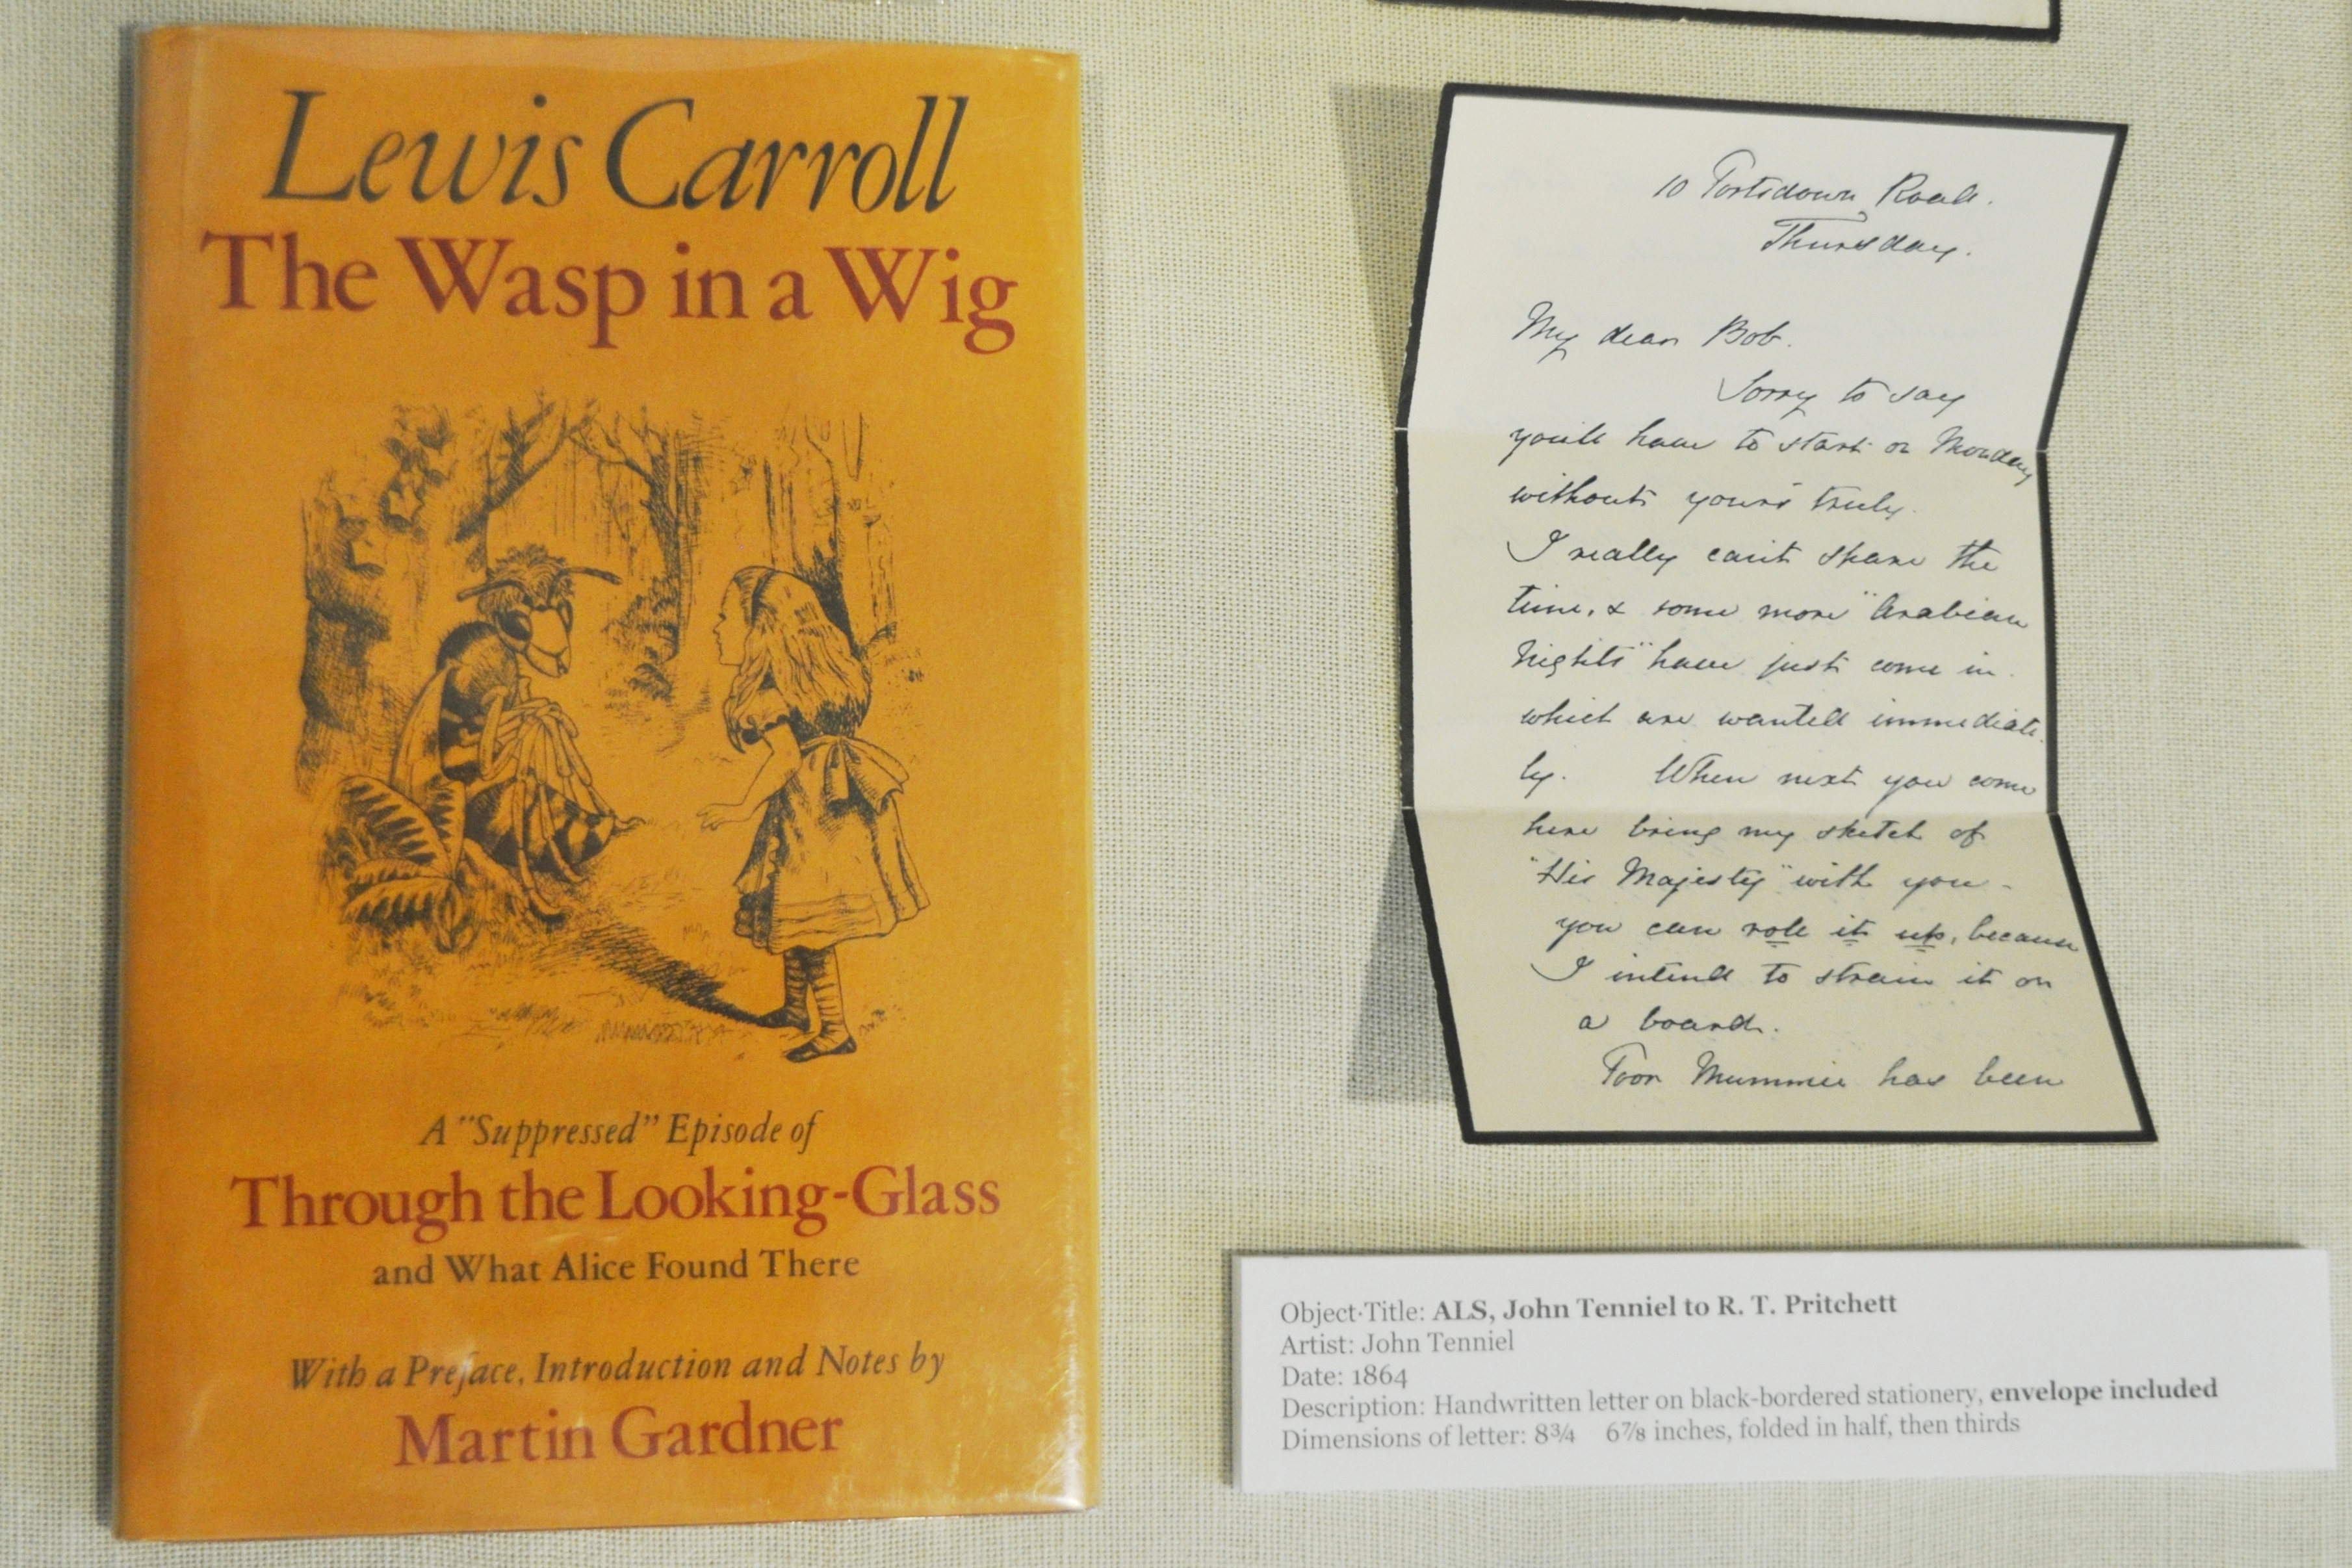 Lewis Carroll
The Wasp in a Wig
A "Suppressed" Episode of
Through the Looking-Glass
and What Alice Found There
With a Preface, Introduction and Notes by
Martin Gardner
10 Portsdown Road.
Thursday.
My dear Bob.
Sorry to say
you'll have to start on Monday
without yours truly.
I really can't spare the
time, & some more "Arabian
Nights" have just come in
which are wanted immediate
ly. When next you come
here bring my sketch of
"His Majesty" with you -
you can roll it up, because
I intend to strain it on
a board.
Poor Mummie has been
Object Title: ALS, John Tenniel to R. T. Pritchett
Artist: John Tenniel
Date: 1864
Description: Handwritten letter on black-bordered stationery, envelope included
Dimensions of letter: 8¾ 6⅞ inches, folded in half, then thirds